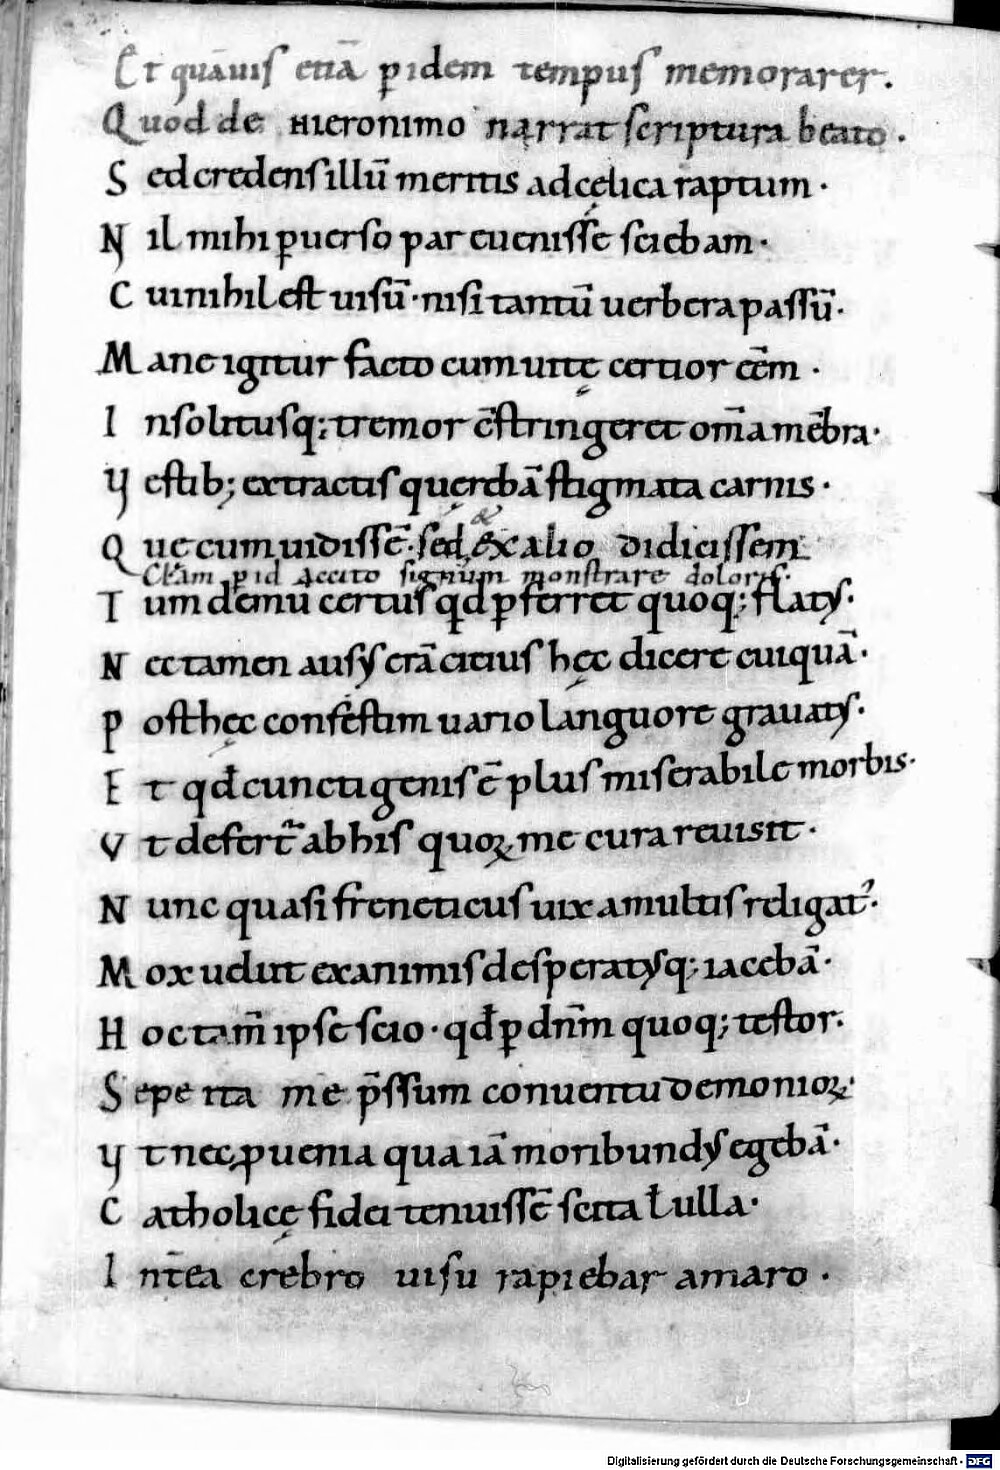 Et quāuis etiā ꝑ idem tempus memorarer.
Quod de hieronimo narrat scriptura beato.
Sed credens illū meritis ad cęlica raptum.
Nil mihi ꝑuerso par euenisse sciebam.
Cui nihil est uisū. nisi tantū uerbera passū.
Mane igitur facto cum uitę certior eēm.
Insolitusq; tremor c̄stringeret om̄a mēbra.
Vestib; extractis quęrebā stigmata carnis.
Que cum uidissē. sed & ex alio didicissem
Clam ꝑ id accito signum monstrare doloris.
Tum demū certus qđ ꝑferret quoq; flatꝰ.
Nec tamen ausꝰ erā citius hęc dicere cuiquā.
Post hęc confestim uario languore grauatꝰ.
Et qđ cunctigenis ē plus miserabile morbis.
Vt deferr̄ ab his quoꝝ me cura reuisit.
Nunc quasi freneticus uix a multis religat᷒.
Mox uelut exanimis desperatꝰq; iacebā.
Hoc tam̄ ipse scio. qđ ꝑ dn̄m quoq; testor.
Sepe ita me p̄ssum conuentu demonioꝝ.
Vt nec ꝑ uenia qua iā moribundꝰ egebā.
Catholicę fidei tenuissē scita ł ulla.
Int̄ea crebro uisu rapiebar amaro.
Digitalisierung gefördert durch die Deutsche Forschungsgemeinschaft - DFG